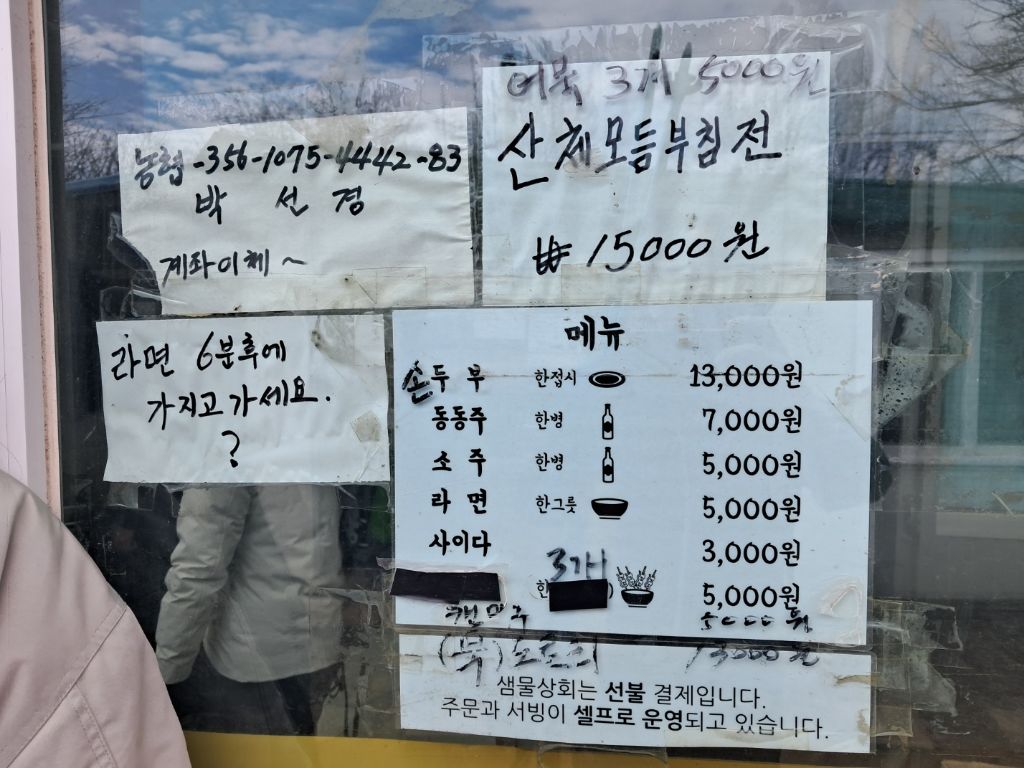 농협-356-1075-4442-83
박 선 경
계좌이체~
어묵 3개 5000원
산체모듬부침전
₩ 15000원
라면 6분후에
가지고가세요.
?
메뉴
손두부 한접시 13,000원
동동주 한병 7,000원
소주 한병 5,000원
라면 한그릇 5,000원
사이다 3,000원
3개
한 ) 5,000원
캔맥주 5000원
(묵)도토리 13000원
샘물상회는 선불 결제입니다.
주문과 서빙이 셀프로 운영되고 있습니다.